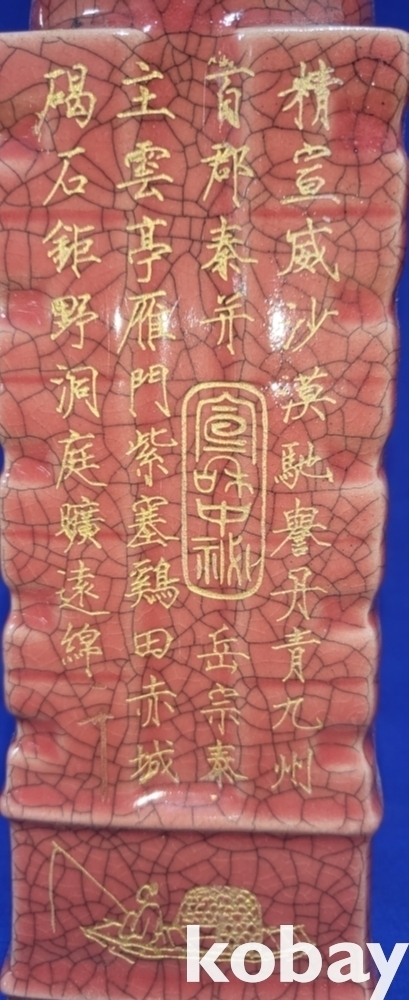 精宣威沙漠馳譽丹青九州
百郡秦并岳宗泰
宣和中秘
主雲亭雁門紫塞鷄田赤城
碣石鉅野洞庭曠遠綿
kobay